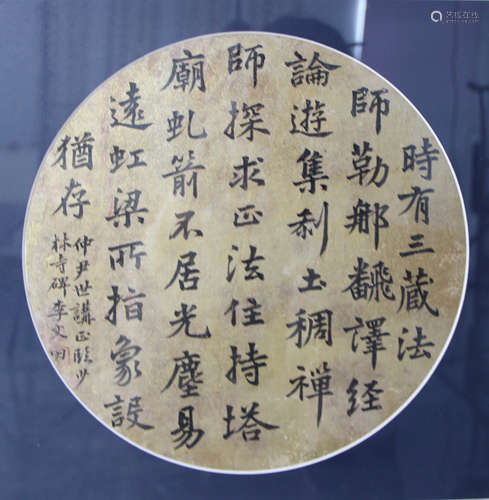 時有三藏法
師勒郍飜譯经
論遊集刹土稠禪
師探求正法住持塔
廟虬箭不居光塵易
遠虹梁所指象設
猶存
仲尹世講正臨少
林寺碑李文田